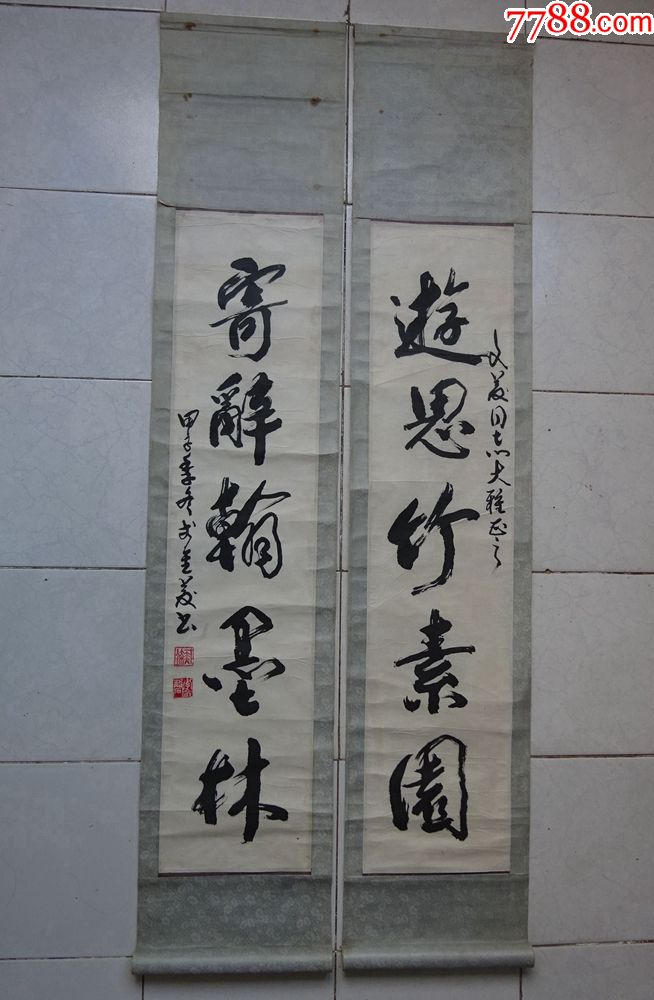 7788.com
遊思竹素園
同志大雅正之
寄辭翰墨林
甲子季冬
书